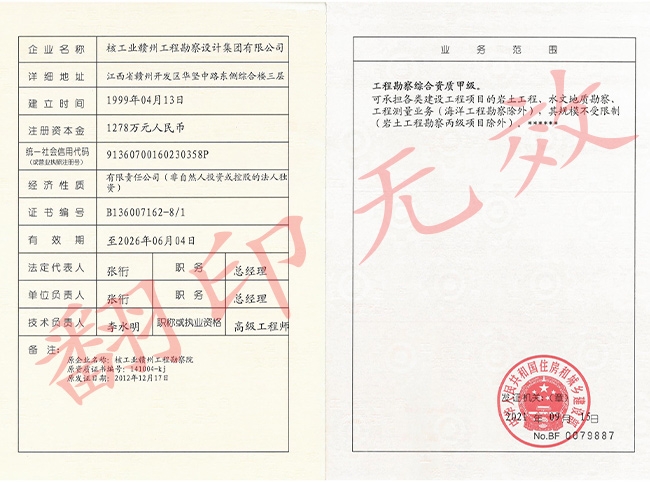 企业名称 核工业赣州工程勘察设计集团有限公司
详细地址 江西省赣州开发区华坚中路东侧综合楼三层
建立时间 1999年04月13日
注册资本金 1278万元人民币
统一社会信用代码
(或营业执照注册号) 91360700160230358P
经济性质 有限责任公司（非自然人投资或控股的法人独资）
证书编号 B136007162-8/1
有效期 至2026年06月04日
法定代表人 张衍 职务 总经理
单位负责人 张衍 职务 总经理
技术负责人 李水明 职称或执业资格 高级工程师
备注：
原企业名称：核工业赣州工程勘察院
原资质证书编号：141004-kj
原发证日期：2012年12月17日
业务范围
工程勘察综合资质甲级。
可承担各类建设工程项目的岩土工程、水文地质勘察、
工程测量业务（海洋工程勘察除外），其规模不受限制
（岩土工程勘察丙级项目除外）。******
中华人民共和国住房和城乡建设部
发证机关：（章）
2021年09月15日
No.BF 0079887
翻印无效